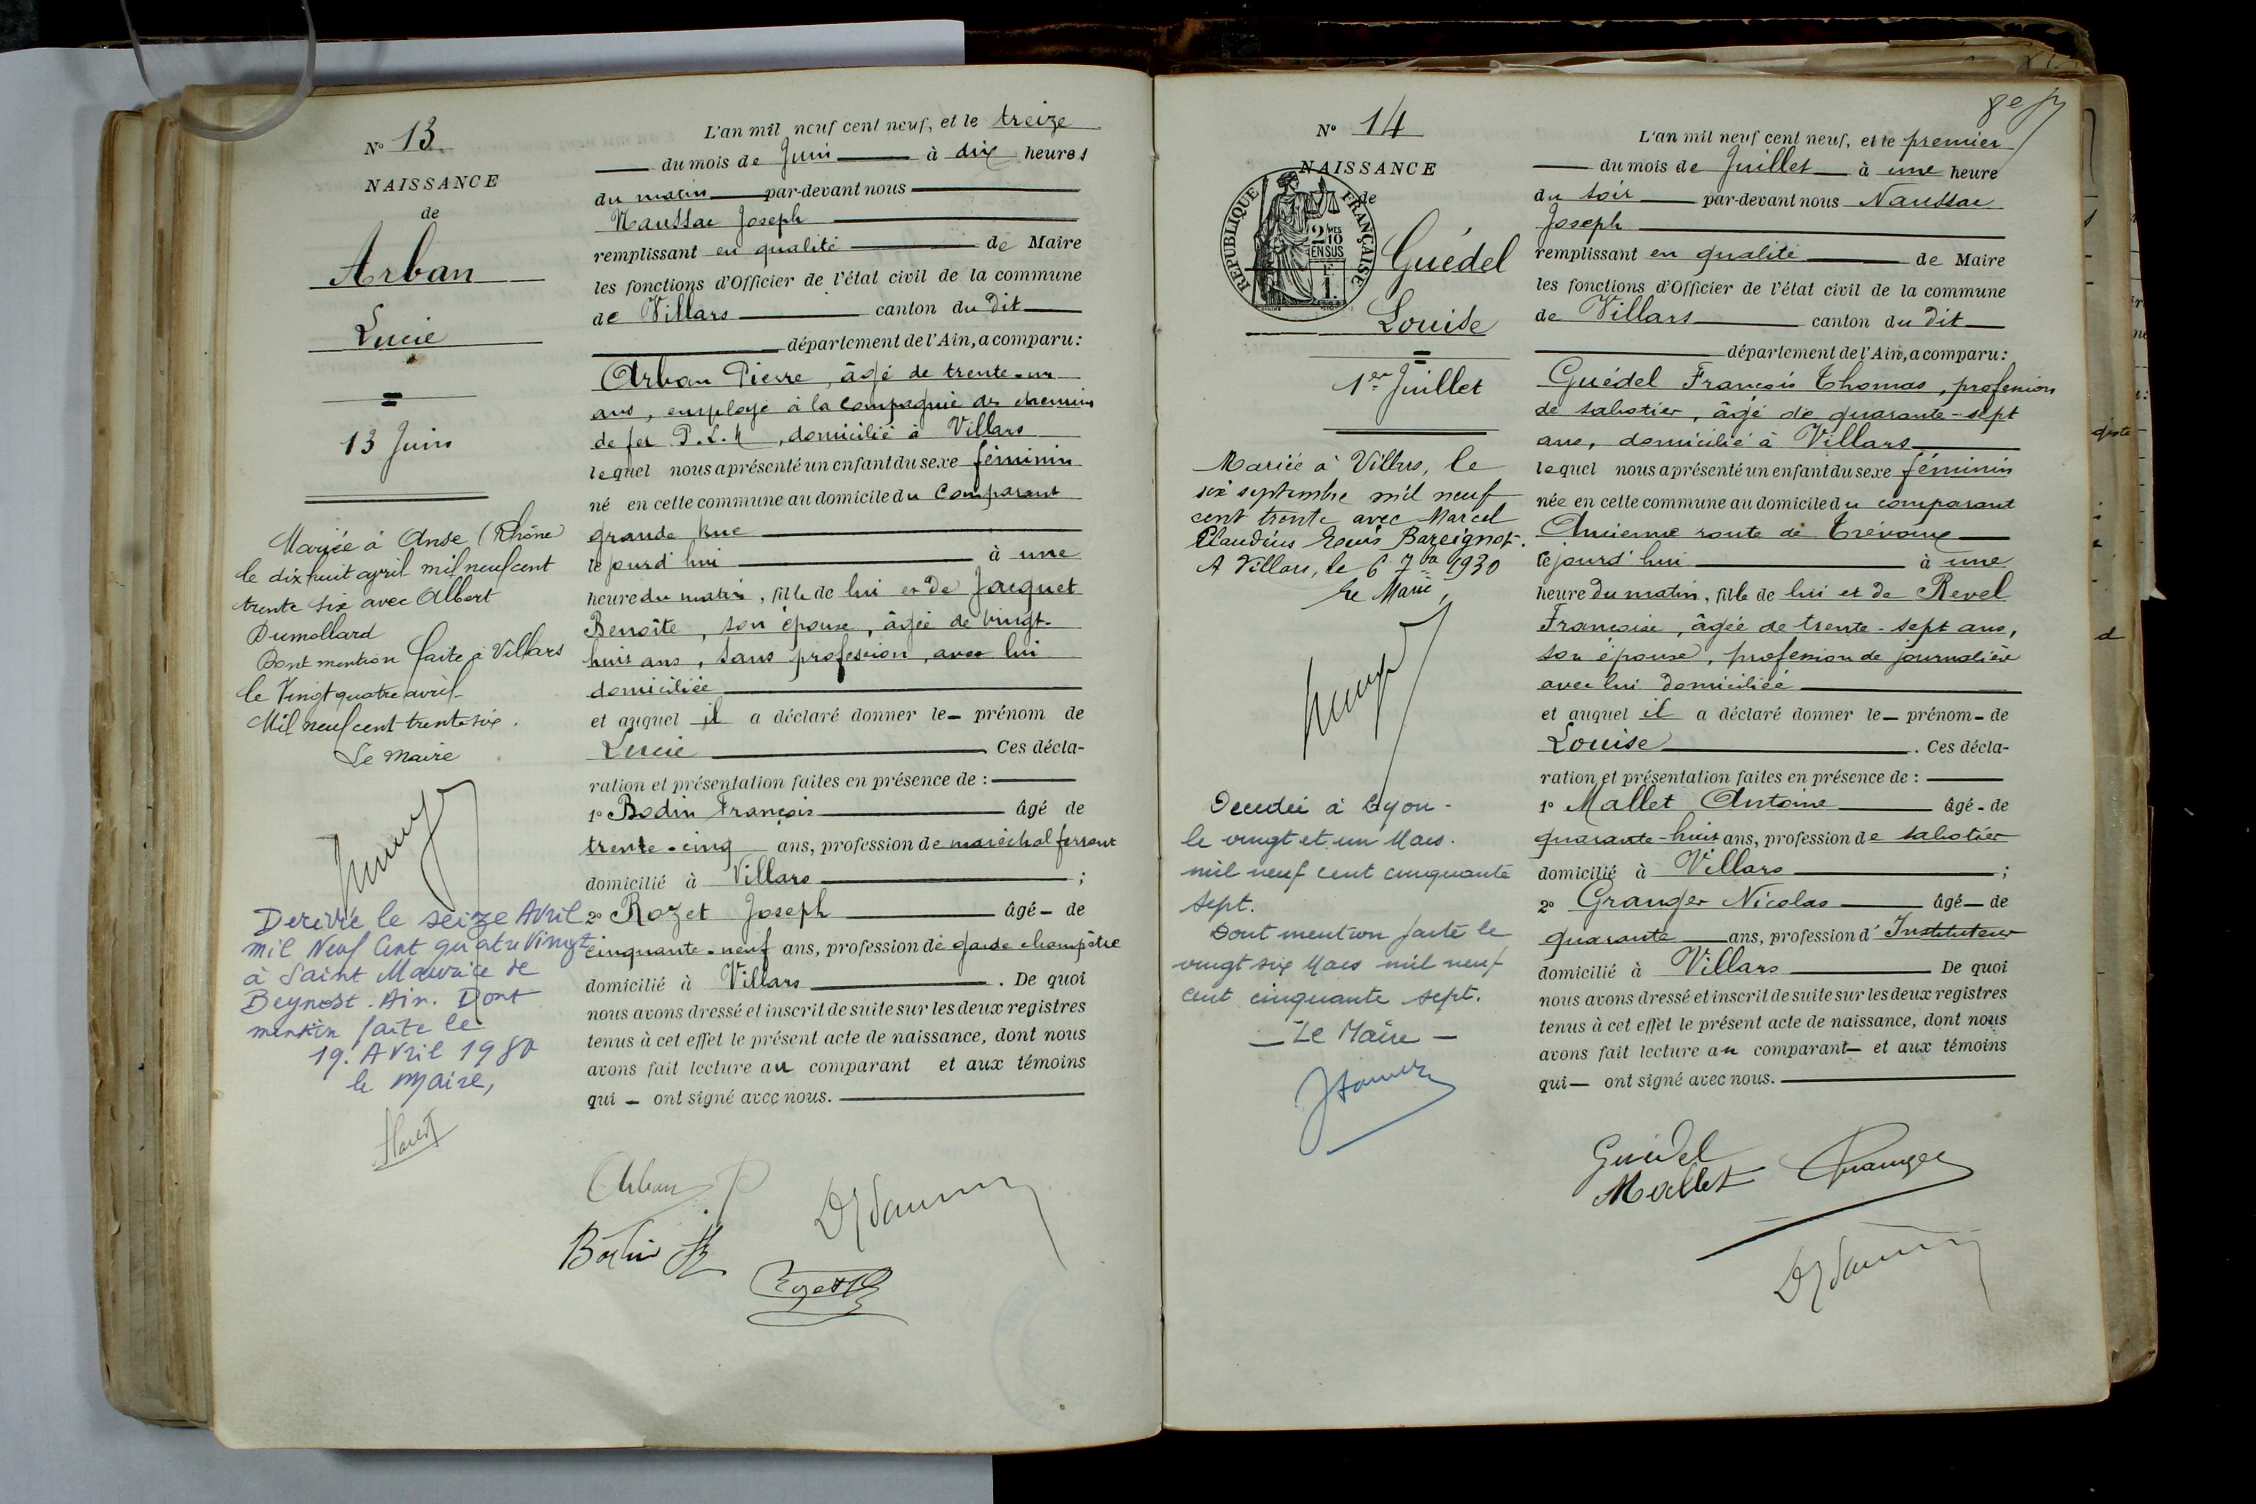 N° 13
NAISSANCE
de
Arban
Lucie
13 Juin
Mariée à Anse (Rhône
le dix huit avril mil neuf cent
trente six avec Albert
Dumollard
Dont mention faite à Villars
le Vingt quatre avril
Mil neuf cent trente six.
Le Maire
le seize Avril
mil Neuf Cent quatre Vingt
à Saint Maurice de
Beynost. Ain. Dont
mention faite le
19. Avril 1980
le Maire,
L'an mil neuf cent neuf, et le treize
du mois de Juin à dix heures
du matin par-devant nous
Naussac Joseph
remplissant en qualité de Maire
les fonctions d'Officier de l'état civil de la commune
de Villars canton du dit
département de l'Ain, a comparu:
Arban Pierre, âgé de trente-un
ans, employé à la Compagnie des chemins
de fer P.L.M, domicilié à Villars
lequel nous a présenté un enfant du sexe féminin
né en cette commune au domicile du Comparant
grande rue
le jourd'hui à une
heure du matin, fille de lui et de Jacquet
Benoîte, son épouse, âgée de vingt-
huit ans, sans profession, avec lui
domiciliée
et auquel il a déclaré donner le prénom de
Lucie . Ces décla-
ration et présentation faites en présence de :
1° Bodin François âgé de
trente-cinq ans, profession de maréchal ferrant
domicilié à Villars ;
2° Rozet Joseph âgé de
cinquante-neuf ans, profession de garde champêtre
domicilié à Villars . De quoi
nous avons dressé et inscrit de suite sur les deux registres
tenus à cet effet le présent acte de naissance, dont nous
avons fait lecture au comparant et aux témoins
qui ont signé avec nous.
Arban P
Bodin
Rozet
N° 14
NAISSANCE
de
REPUBLIQUE FRANÇAISE
2/10
EN SUS
Guédel
Louise
1er Juillet
Mariée à Villars, le
six septembre mil neuf
cent trente avec Marcel
Claudius Louis Bareignot.
A Villars, le 6 7bre 1930
Le Maire,
Décédée à Lyon -
le vingt et un Mars.
mil neuf cent cinquante
sept.
Dont mention faite le
vingt six Mars mil neuf
cent cinquante sept.
- Le Maire -
L'an mil neuf cent neuf, et le premier
du mois de Juillet à une heure
du soir par-devant nous Naussac
Joseph
remplissant en qualité de Maire
les fonctions d'Officier de l'état civil de la commune
de Villars canton du dit
département de l'Ain, a comparu:
Guédel François Thomas, profession
de sabotier, âgé de quarante-sept
ans, domicilié à Villars
lequel nous a présenté un enfant du sexe féminin
née en cette commune au domicile du comparant
Ancienne route de Trévoux
le jourd'hui à une
heure du matin, fille de lui et de Revel
Françoise, âgée de trente-sept ans,
son épouse, profession de journalière
avec lui domiciliée
et auquel il a déclaré donner le prénom de
Louise . Ces décla-
ration et présentation faites en présence de :
1° Mallet Antoine âgé de
quarante-huit ans, profession de sabotier
domicilié à Villars ;
2° Granger Nicolas âgé de
quarante ans, profession d'Instituteur
domicilié à Villars De quoi
nous avons dressé et inscrit de suite sur les deux registres
tenus à cet effet le présent acte de naissance, dont nous
avons fait lecture au comparant et aux témoins
qui ont signé avec nous.
Guédel
Mallet Granger